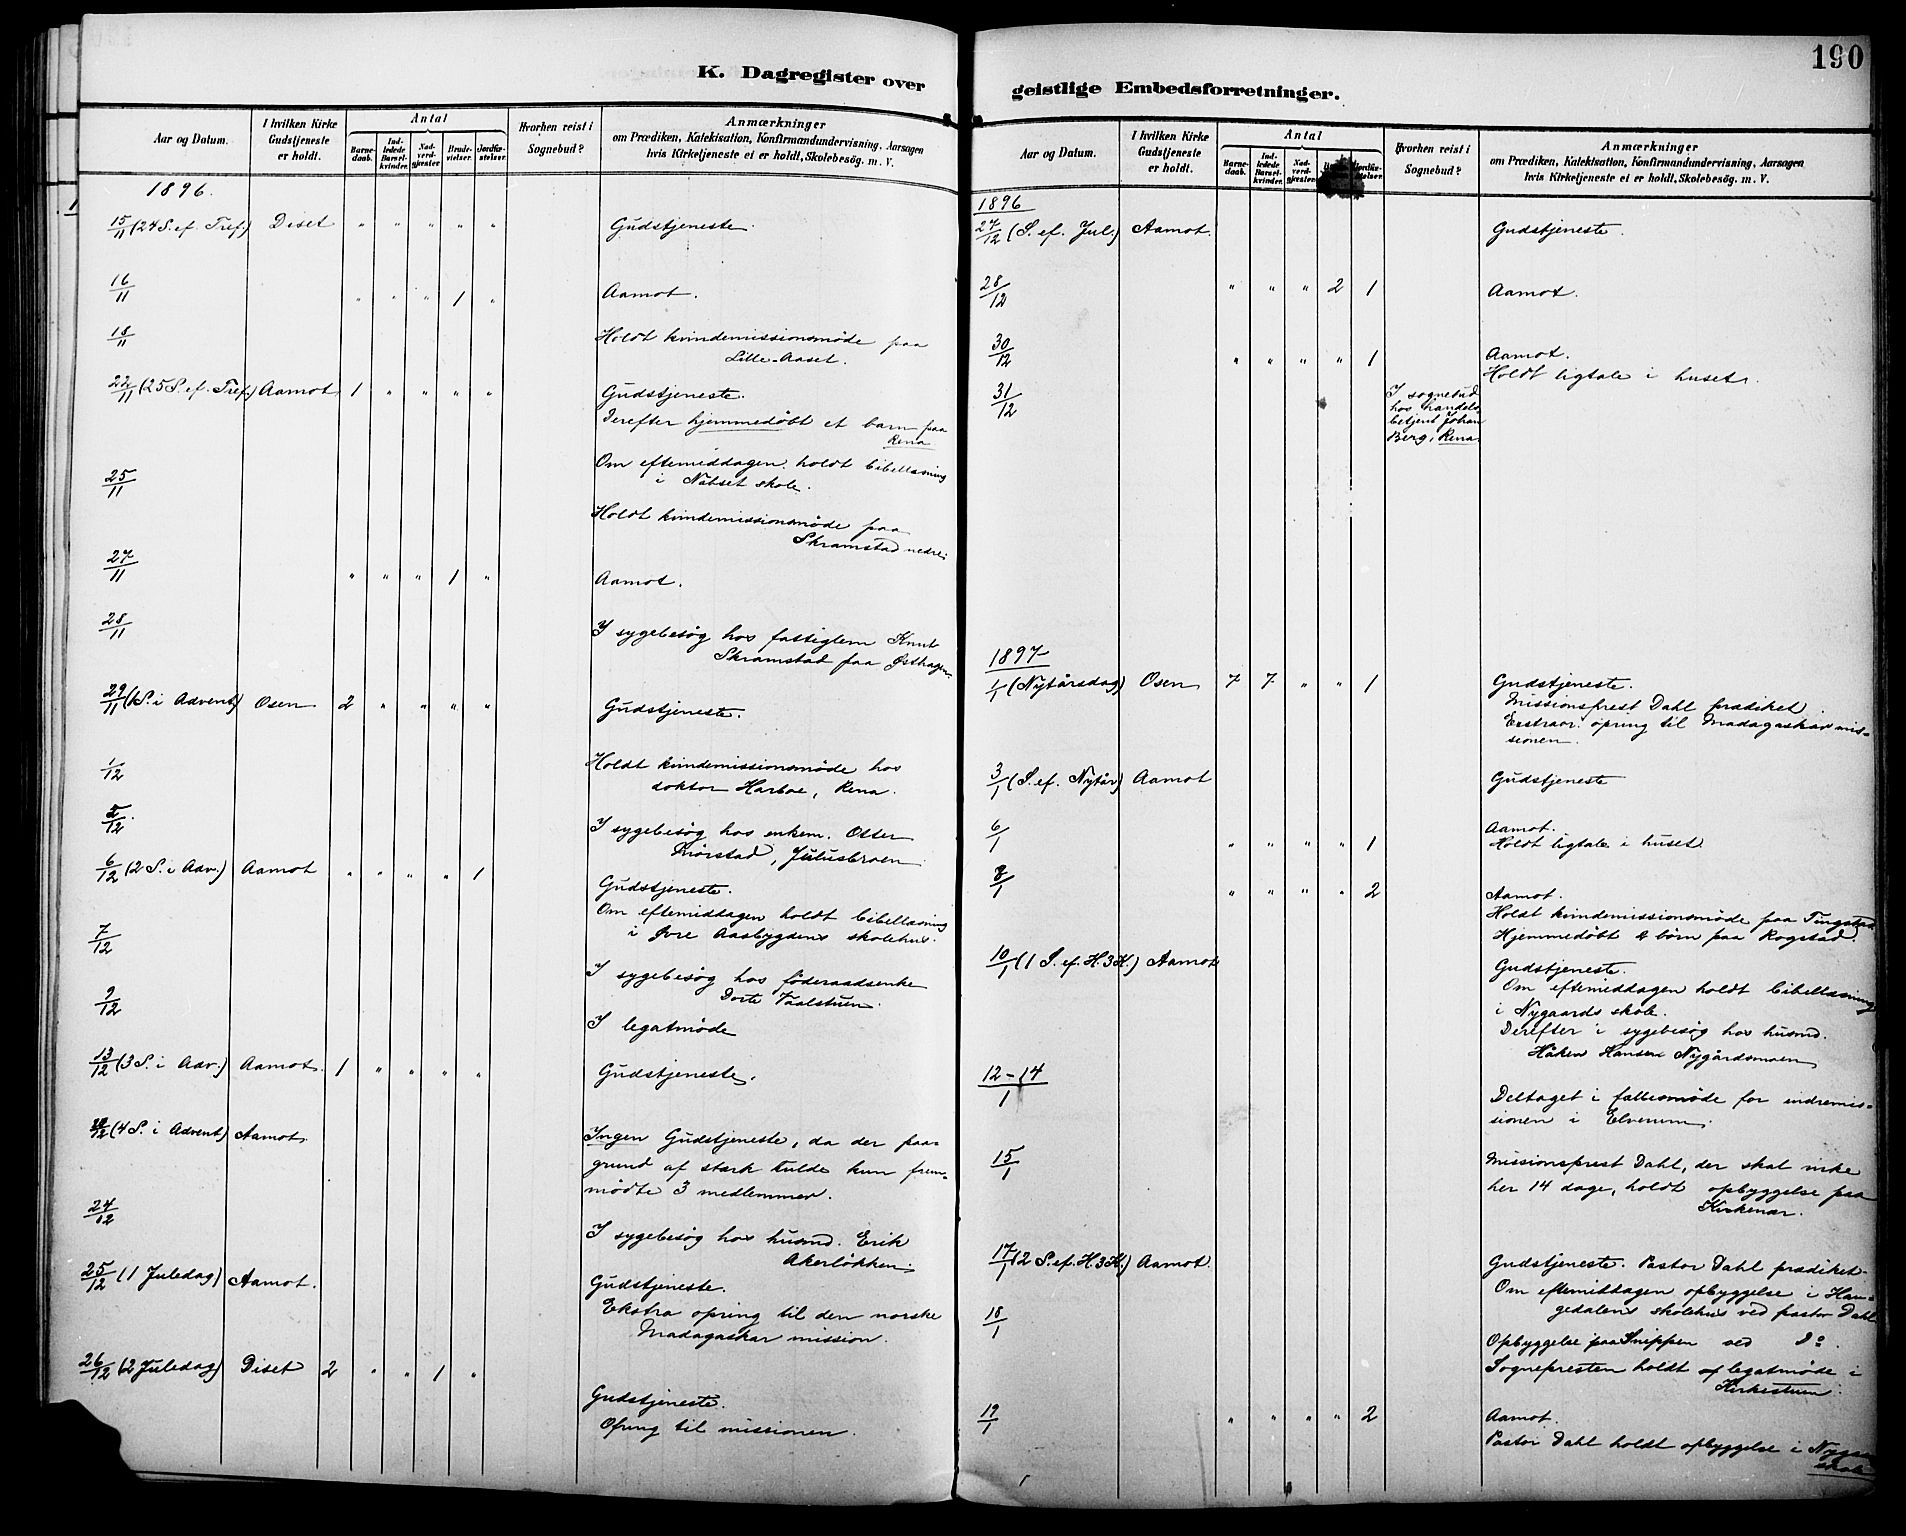 K. Dagregister over
Aar og Datum.
I hvilken Kirke Gudstjeneste er holdt.
Antal
Barnedaab.
Indledede Barselkvinder.
Nadverdgjester.
Brudevielser.
Jordfæstelser.
Hvorhen reist i Sognebud?
Anmærkninger
om Prædiken, Katekisation, Konfirmandundervisning, Aarsagen
hvis Kirketjeneste ei er holdt, Skolebesög. m. V.
1896.
15/11 (24 S. ef. Tref.) Diset " " " " " Gudstjeneste.
16/11 " " " 1 " Aamot.
18/11 Holdt kvindemissionsmöde paa
Lille-Aaset.
22/11 (25 S. ef. Tref.) Aamot 1 " " " " Gudstjeneste.
Derefter hjemmedöbt et barn paa
Rena
Om eftemiddagen holdt bibellæsning
i Nabset skole.
25/11 Holdt kvindemissionsmöde paa
Skramstad nedre.
27/11 " " " 1 " Aamot.
28/11 I sygebesög hos fattiglem Knut
Skramstad paa Østhagen
29/11 (1 S. i Advent) Osen 2 " " " " Gudstjeneste.
1/12 Holdt kvindemissionsmöde hos
doktor Harboe, Rena.
5/12. I sygebesög hos enkem. Otter
, Julusbroen.
6/12 (2 S. i Adv.) Aamot " " " " 1 Gudstjeneste.
Om eftemiddagen holdt bibellæsning
i Øvre Aasbygdens skolehus.
7/12 I sygebesög hos föderaadsenke
Dorte Vaalstuen.
9/12 I legatmöde
13/12 (3 S. i Adv.) Aamot. 1 " " " " Gudstjeneste.
20/12 (4 S. i Advent) Aamot. Ingen Gudstjeneste, da der paa-
grund af stærk kulde kun frem-
mödte 3 medlemmer.
24/12 I sygebesög hos husmd. Erik
Akerlökken.
25/12 (1 Juledag) Aamot. Gudstjeneste.
Ekstra opring til den norske
Madagaskar mission.
26/12 (2 Juledag) Diset 2 " " 1 " Gudstjeneste.
Ofring til missionen.
190
geistlige Embedsforretninger.
Aar og Datum.
I hvilken Kirke Gudstjeneste er holdt.
Antal
Barnedaab.
Indledede Barselkvinder.
Nadverdgjester.
Hvorhen reist i Sognebud?
Anmærkninger
om Prædiken, Katekisation, Konfirmandundervisning, Aarsagen
hvis Kirketjeneste ei er holdt, Skolebesög. m. V.
1896
27/12 (S. ef. Jul.) Aamot. Gudstjeneste.
28/12 " " " 2 1 Aamot.
30/12 " " " " 1 Aamot.
Holdt ligtale i huset.
31/12 I sognebud
hos handels-
betjent Johan
Berg, Rena
1897
1/1 (Nytårsdag) Osen 7 7 " " 1 Gudstjeneste.
Missionsprest Dahl prædiket.
Exstraor. opring til Madagaskar mis-
sionen.
3/1 (S. ef. Nytår) Aamot Gudstjeneste
6/1 " " " " 1 Aamot.
Holdt ligtale i huset
8/1 " " " " 2 Aamot.
Holdt kvindemissionsmöde paa Tingstad
Hjemmedöbt 2 börn paa Rogstad.
10/1 (1 S. ef. H.3K.) Aamot Gudstjeneste.
Om eftemiddagen holdt bibellæsning
i Nygaards skole.
Derefter i sygebesög hos husmd.
Håken Hansen Nygårdsmoen
12-14/1 Deltaget i fællesmöde for indremis-
sionen i Elverum.
15/1 Missionsprest Dahl, der skal virke
her 14 dage, holdt opbyggelse paa
Kirkenær.
17/1 (2 S. ef. H.3K.) Aamot. Gudstjeneste. Pastor Dahl prædiket.
Om eftemiddagen opbyggelse i Hau-
gedalens skolehus ved pastor Dahl
18/1 Opbyggelse paa Snippen ved do.
Sognepresten holdt af legatmöde i
Kirkestuen.
19/1 " " " " 2 Aamot.
Pastor Dahl holdt opbyggelse i
skole